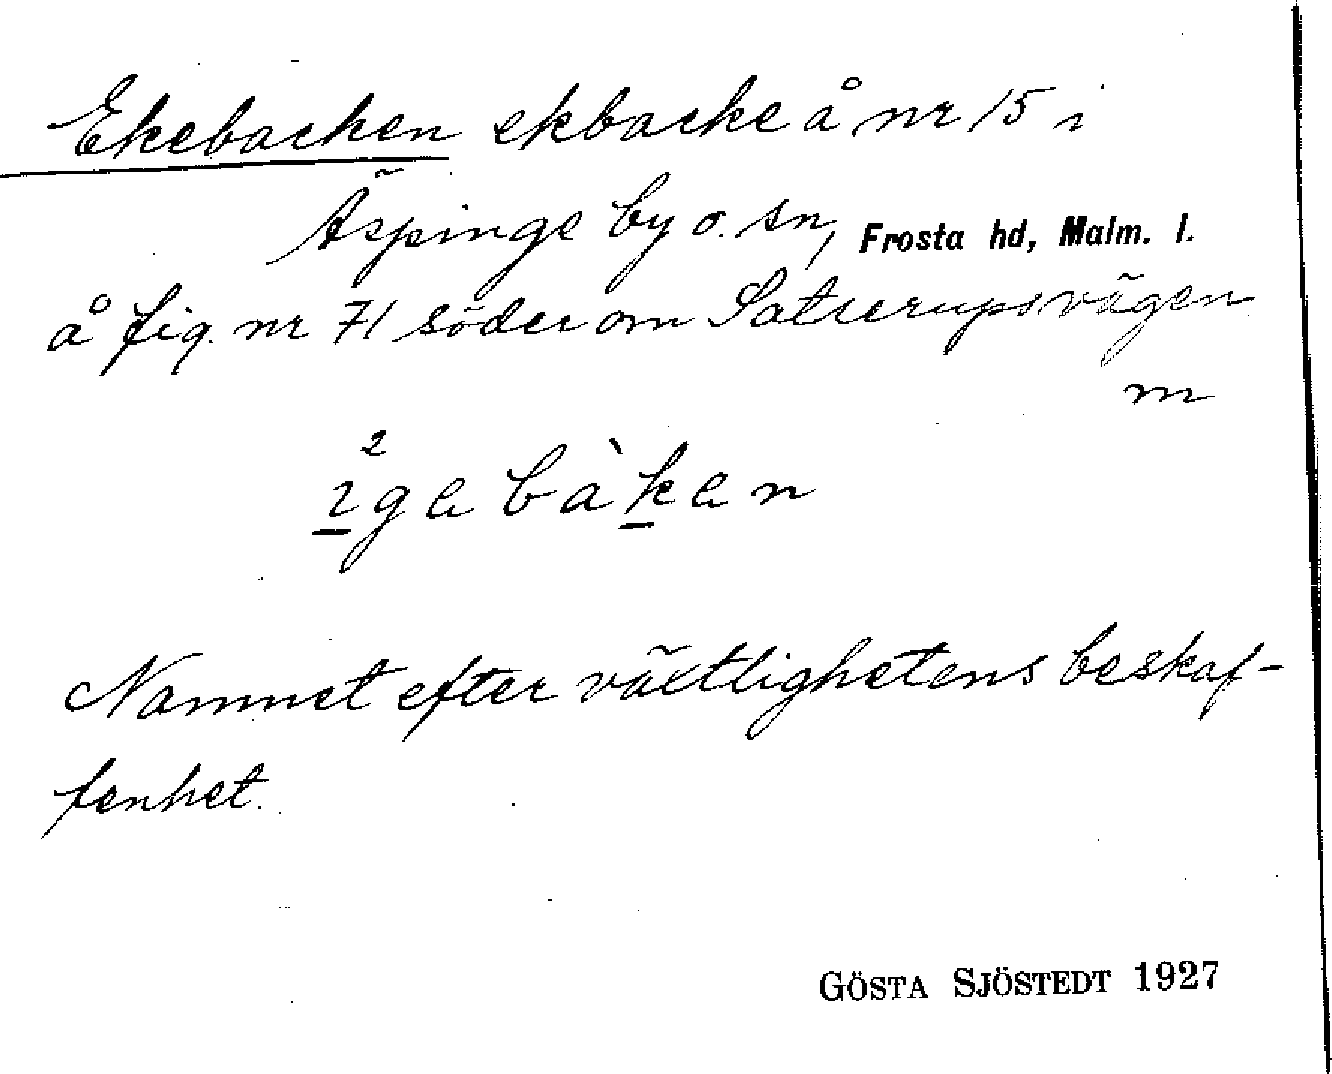 Ekebacken ekbacke å nr 15 i
Äspinge by o. sn, Frosta hd, Malm. l.
å fig. nr 71 söder om Satserupsvägen
m
Namnet efter växtlighetens beskaf-
fenhet.
GÖSTA SJÖSTEDT 1927